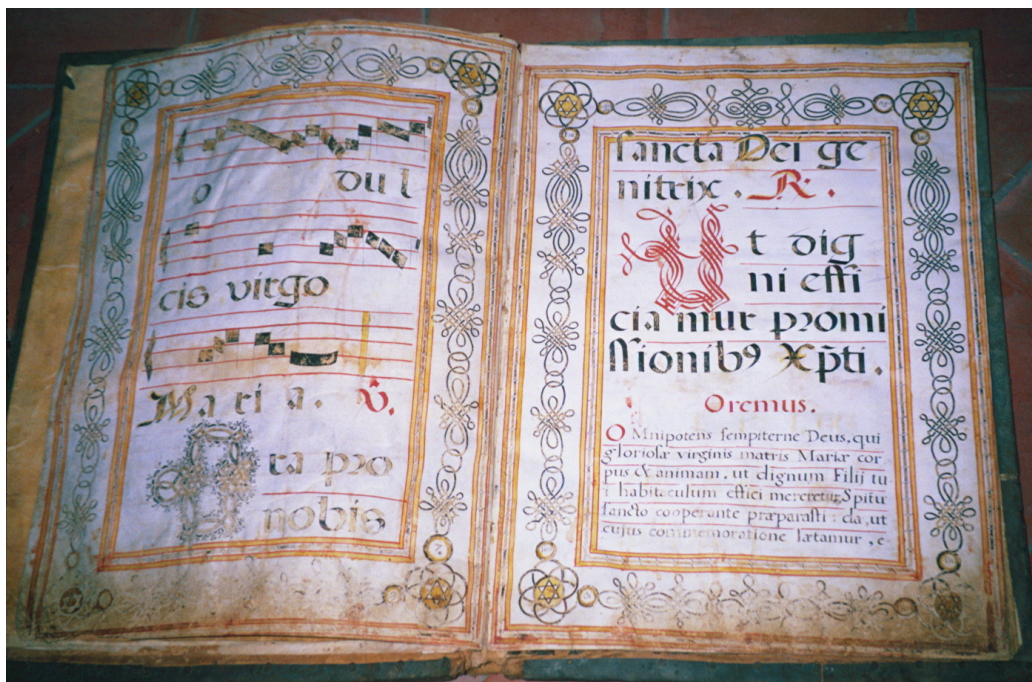 o dul
cis virgo
Maria. V̂.
Ora pro
nobis
sancta Dei ge
nitrix. R.
Ut dig
ni effi
cia mur promi
ssionibꝰ Xp̃ti.
Oremus.
OMnipotens sempiterne Deus, qui
gloriosæ virginis matris Mariæ cor
pus & animam, ut dignum Filij tu
i habitaculum effici mereretur, Spitu
sancto cooperante præparasti: da, ut
cujus commemoratione lætamur, e-